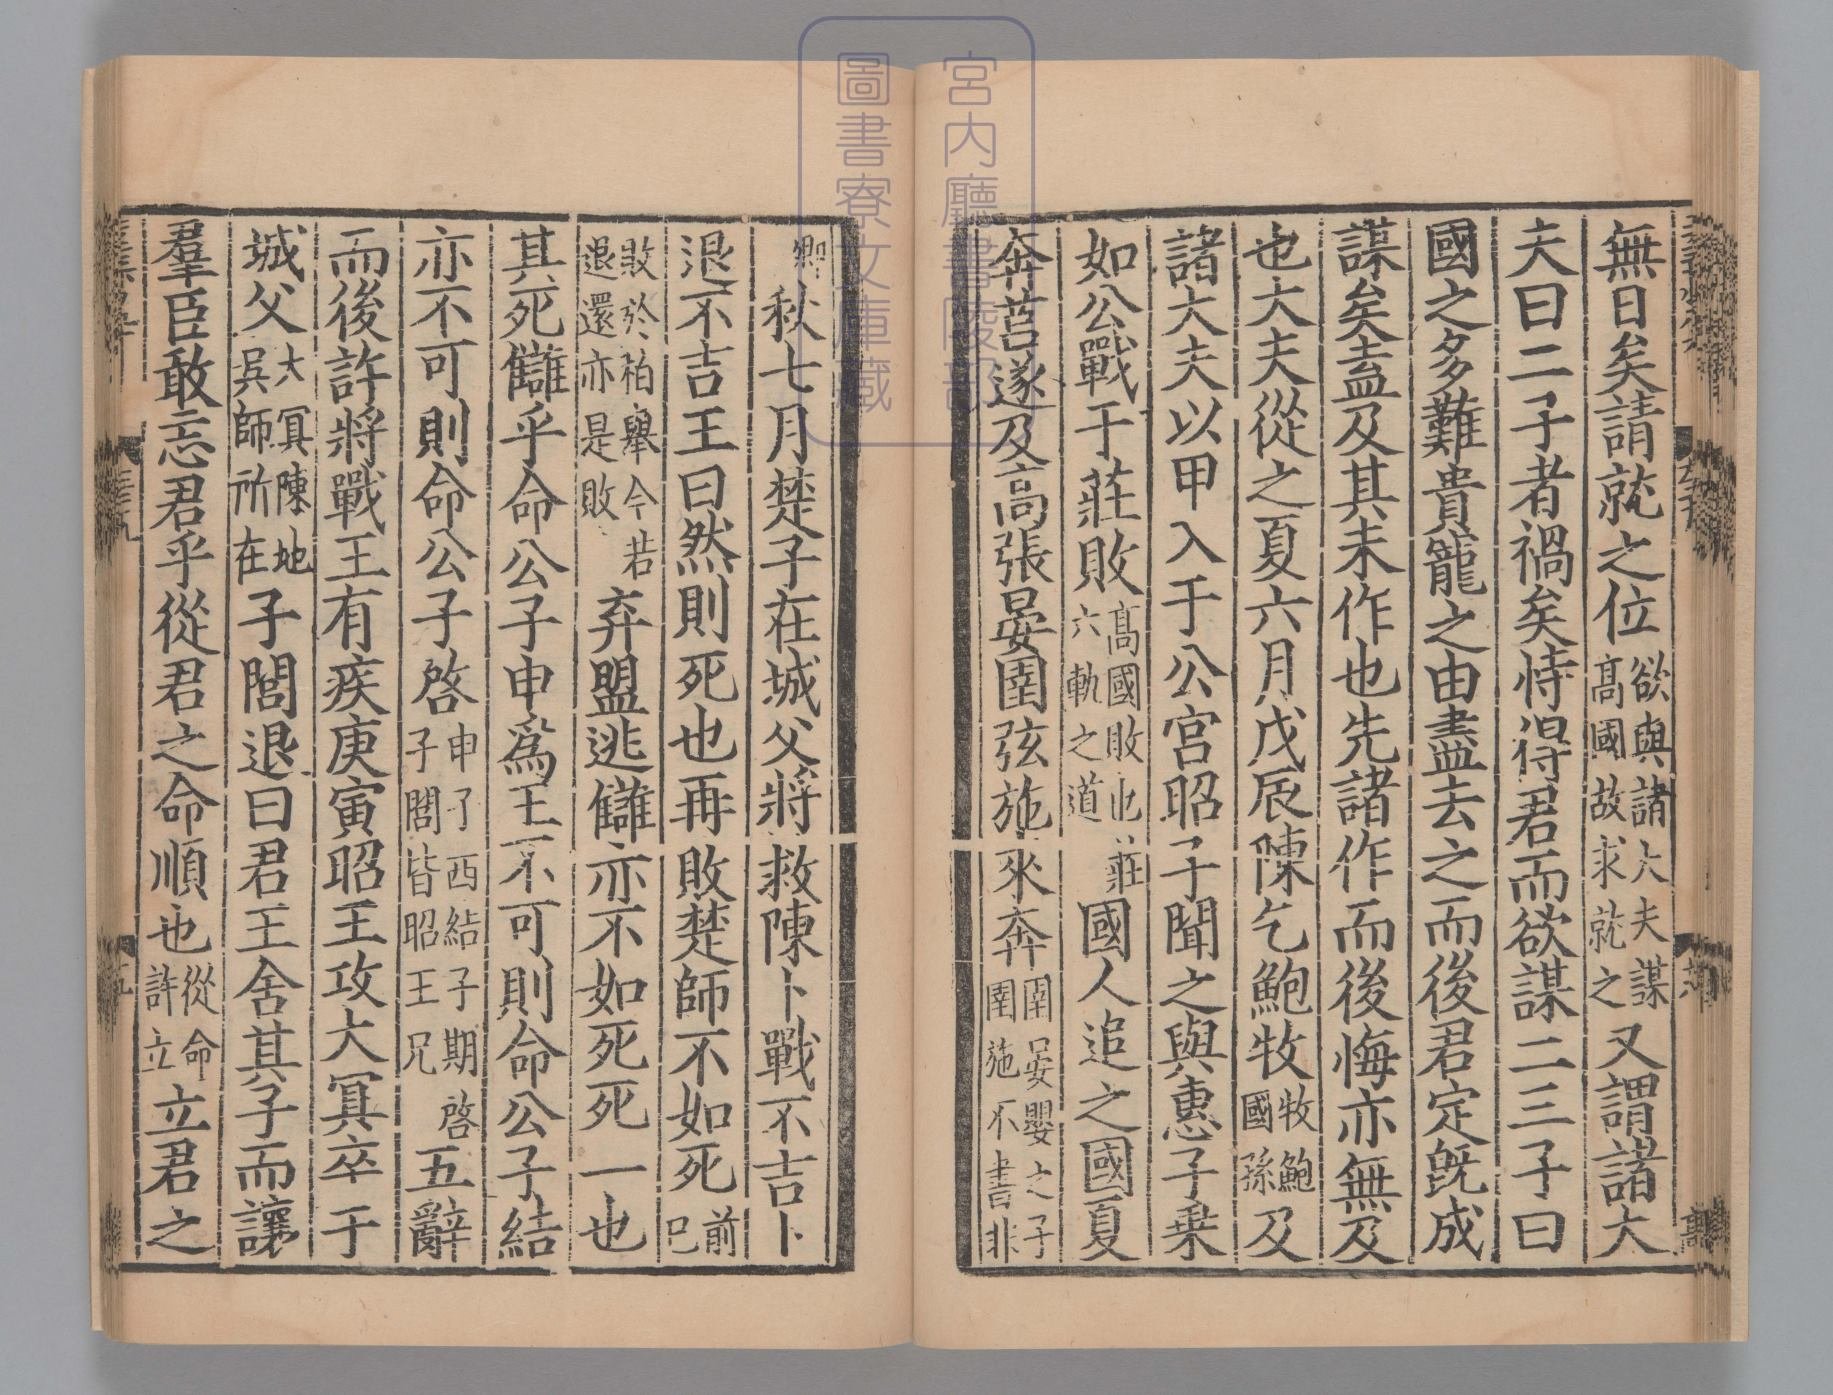 無日矣請就之位欲與諸大夫謀高國故求就之又謂諸大
夫曰二子者禍矣恃得君而欲謀二三子曰
國之多難貴寵之由盡去之而後君定旣成
謀矣盍及其未作也先諸作而後悔亦無及
也大夫從之夏六月戊辰陳乞鮑牧牧鮑國孫及
諸大夫以甲入于公宮昭子聞之與惠子乗
如公戰于莊敗高國敗也莊六軌之道國人追之國夏
奔莒遂及高張晏圉弦施來奔圉晏嬰之子圉施不書非
卿秋七月楚子在城父將救陳卜戰不吉卜
退不吉王曰然則死也再敗楚師不如死前已
敗於柏舉今若退還亦是敗弃盟逃讎亦不如死死一也
其死讎乎命公子申爲王不可則命公子結
亦不可則命公子啓申子西結子期啓子閭皆昭王兄五辭
而後許將戰王有疾庚寅昭王攻大冥卒于
城父大冥陳地吳師所在子閭退曰君王舍其子而讓
羣臣敢忘君乎從君之命順也從命許立立君之
宮内廳書陵部
圖書寮文庫藏